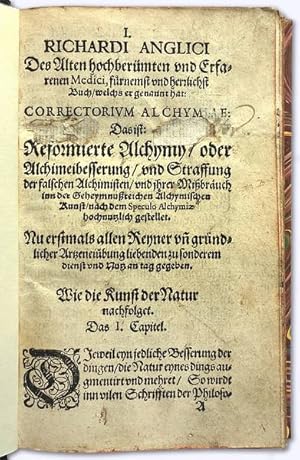 I.
RICHARDI ANGLICI
Des Alten hochberümten vnd Erfa-
renen Medici, fürnemst vnd herrlichst
Buch/welchs er genannt hat:
CORRECTORIVM ALCHYMIÆ:
Das ist:
Reformierte Alchymy/ oder
Alchimeibesserung/ vnd Straffung
der falschen Alchimisten/ vnd jhrer Mißbräuch
inn der Geheymnußreichen Alchymischen
Kunst/ nach dem Speculo Alchymiæ
hochnutzlich gestellet.
Nu erstmals allen Reyner vñ gründ-
licher Artzeneiübung liebenden zu sonderem
dienst vnd Nutz an tag gegeben.
Wie die Kunst der Natur
nachfolget.
Das 1. Capitel.
DJeweil eyn jedliche Besserung der
dingen/ die Natur eynes dings aug-
mentirt vnd mehret/ So würdt
inn vilen Schrifften der Philoso-
A